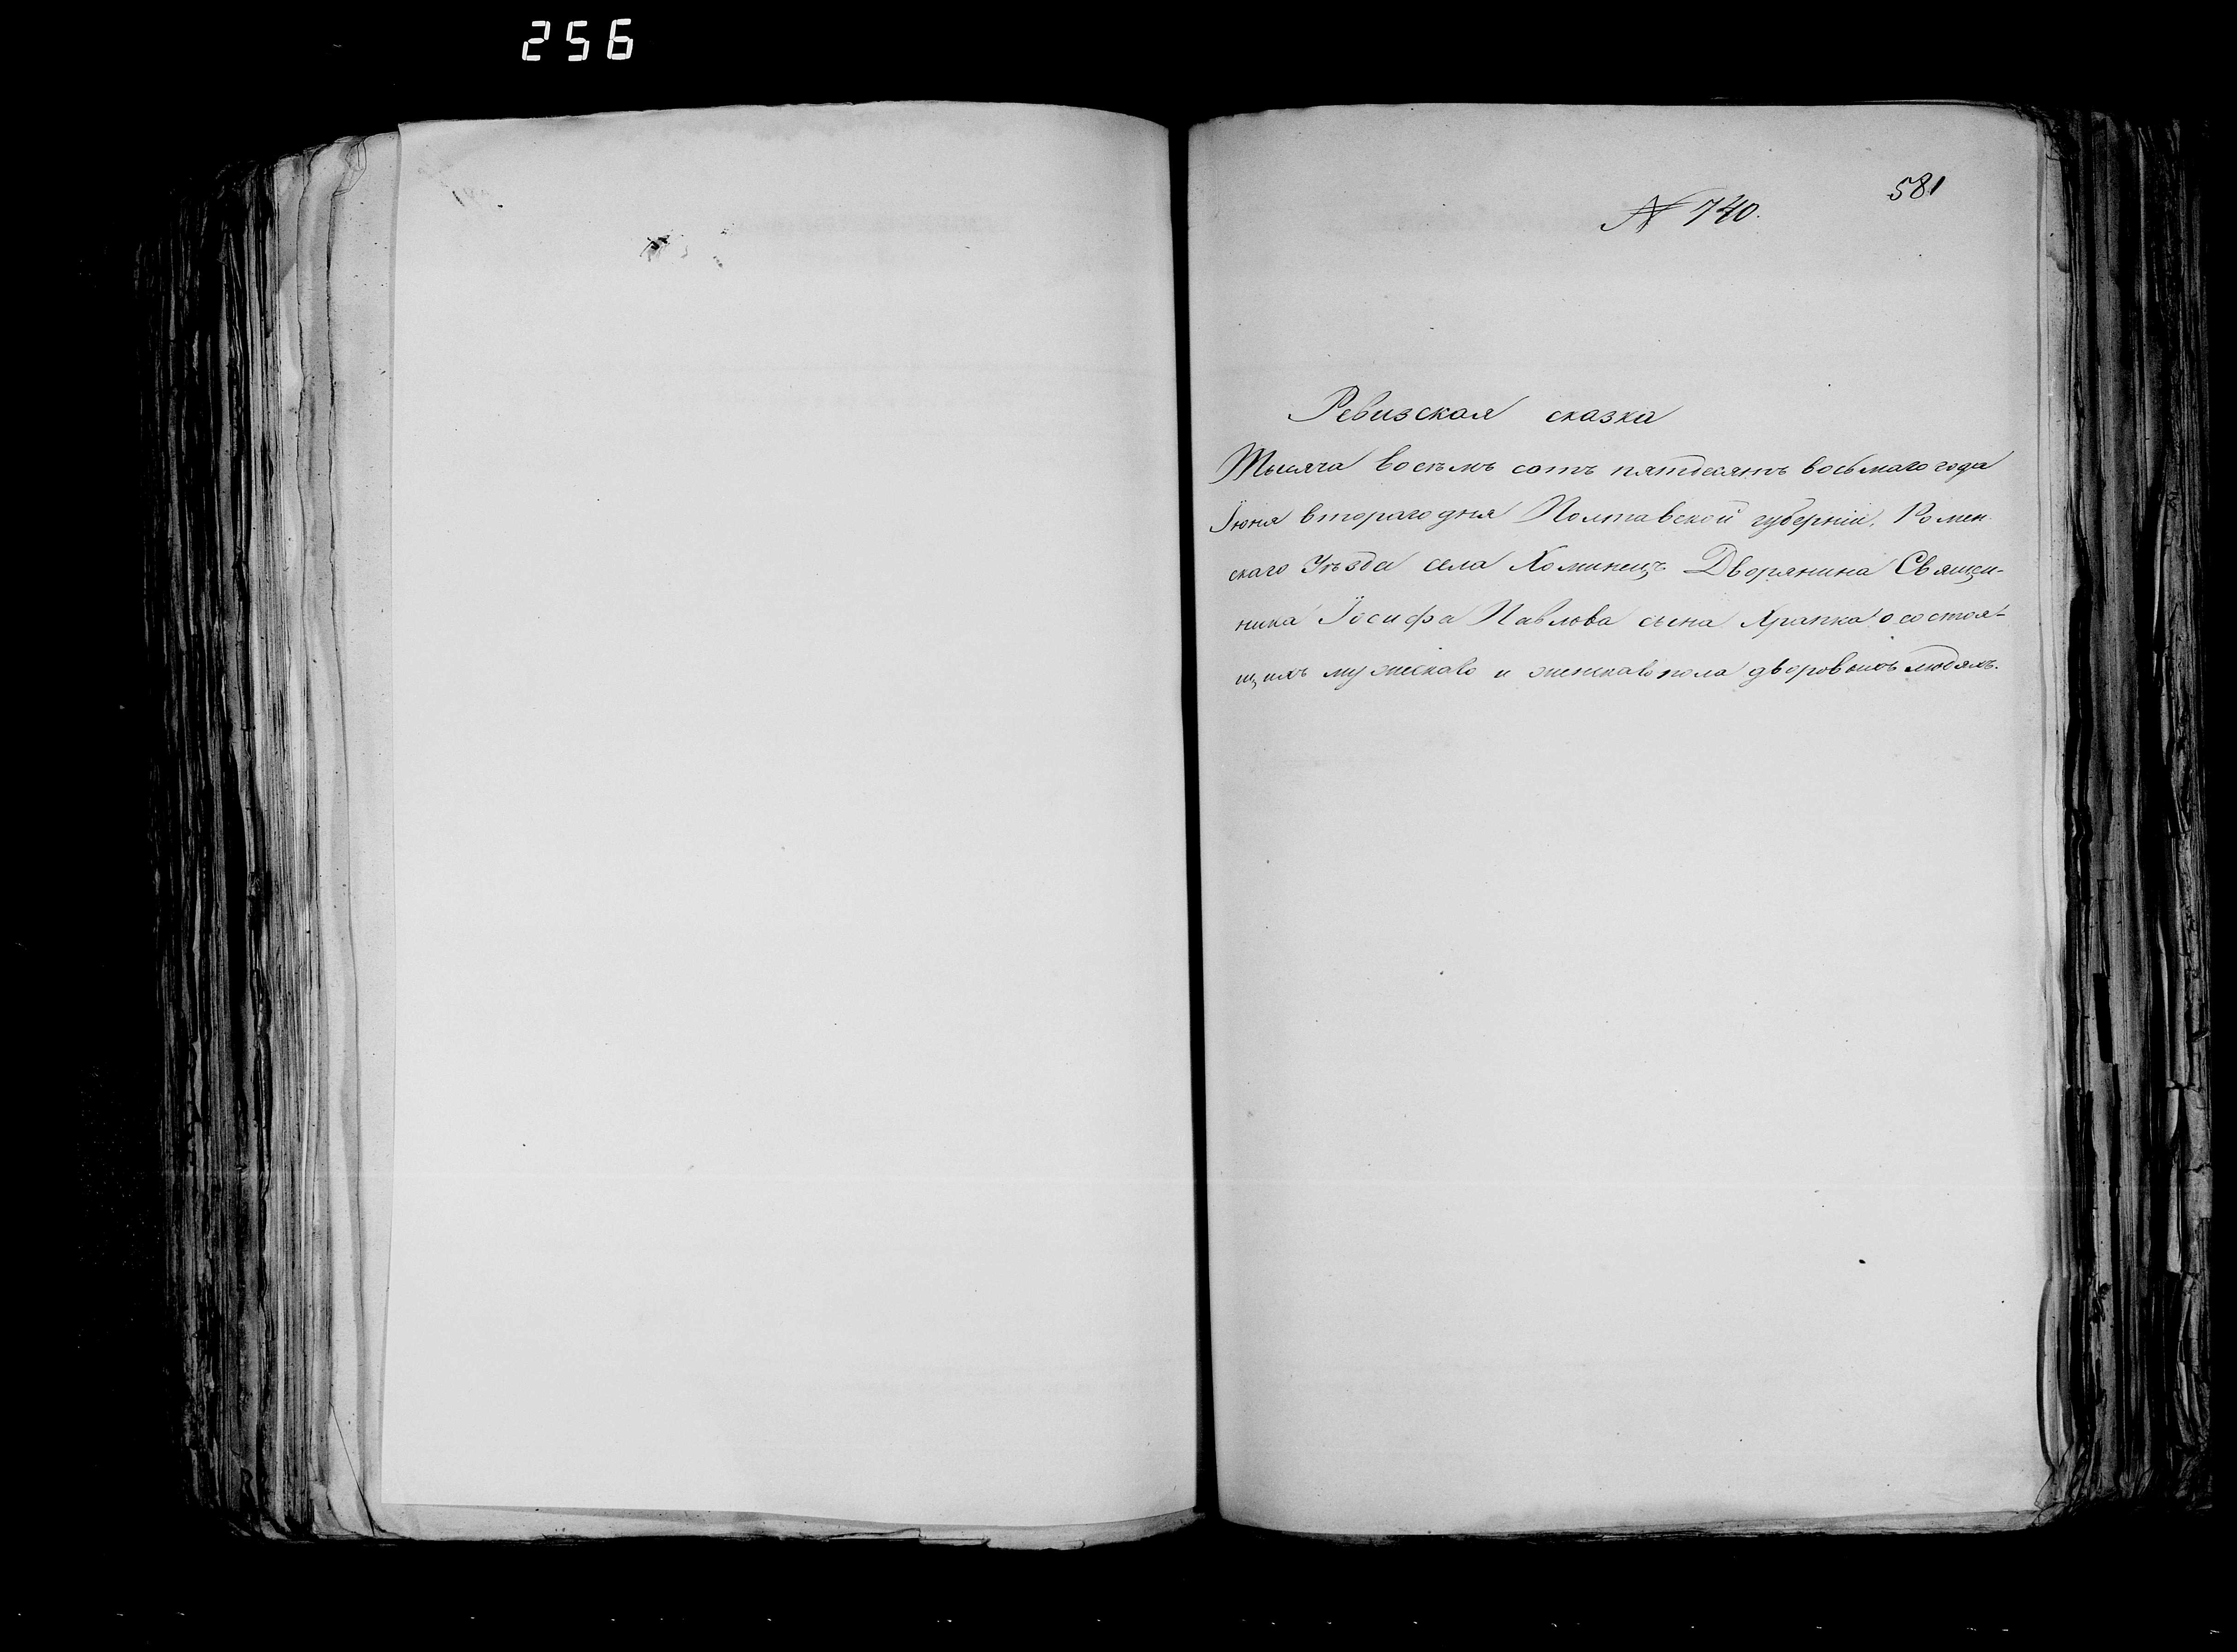 256
581
№ 740.
Ревизская сказка
Тысяча восемь сотъ пятдесятъ восьмаго года
Іюня втораго дня Полтавской губерніи, Ромен
скаго Уѣзда села Хоминецъ Дворянина Священ-
ника Іосифа Павлова сына Храпка о состоя-
щихъ мужескаво и женскаво пола дворовыхъ людяхъ.